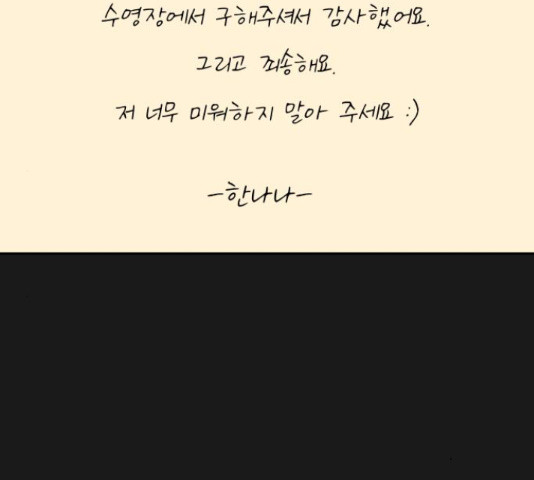 수영장에서 구해주셔서 감사했어요.
그리고 죄송해요.
저 너무 미워하지 말아 주세요 :)
-한나나-